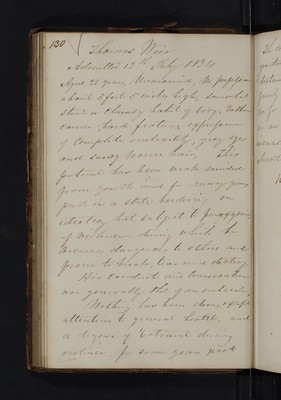 130
Thomas Weir
Admitted 13th Feby 1834
Aged 22 years, Unmarried, No profession
about 5 feet 5 inches high, somewhat
stout or clumsy habit of body, rather
coarse hard features, expression
of complete imbecility, grey eyes
and sandy brown hair. This
patient has been weak minded
from youth and for many years
past in a state bordering on
idiotcy but subject to paroxysms
of violence, during which he
becomes dangerous to others and
prone to break, tear and destroy
His conduct and conversation
are generally those of an imbecile.
Nothing has been done, except
attention to general health, and
a degree of restraint during
violence, for some years past